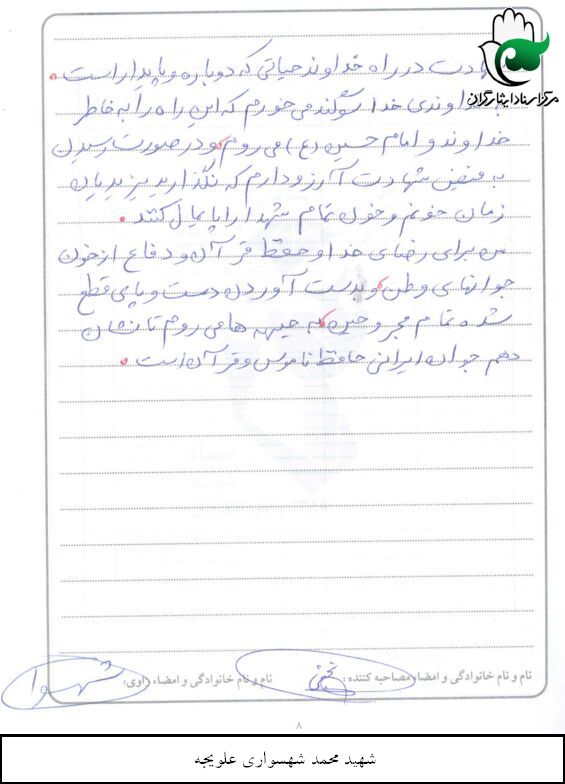 مرکز اسناد ایثارگران
شهادت در راه خداوند حیاتی که دوباره و پایدار است.
به خداوندی خدا سوگند می خورم که این راه را به خاطر
خداوند و امام حسین (ع) می روم و در صورت رسیدن
به فیض شهادت آرزو دارم که نگذارید یزیدیان
زمان خونم و خون تمام شهدا را پایمال کنند.
من برای رضای خدا و حفظ قرآن و دفاع از خون
جوانهای وطن و بدست آوردن دست و پای قطع
شده تمام مجروحین به جبهه ها می روم تا نشان
دهم جوان ایرانی حافظ ناموس و قرآن است.
نام و نام خانوادگی و امضاء مصاحبه کننده:
نام و نام خانوادگی و امضاء راوی:
۸
شهید محمد شهسواری علویجه